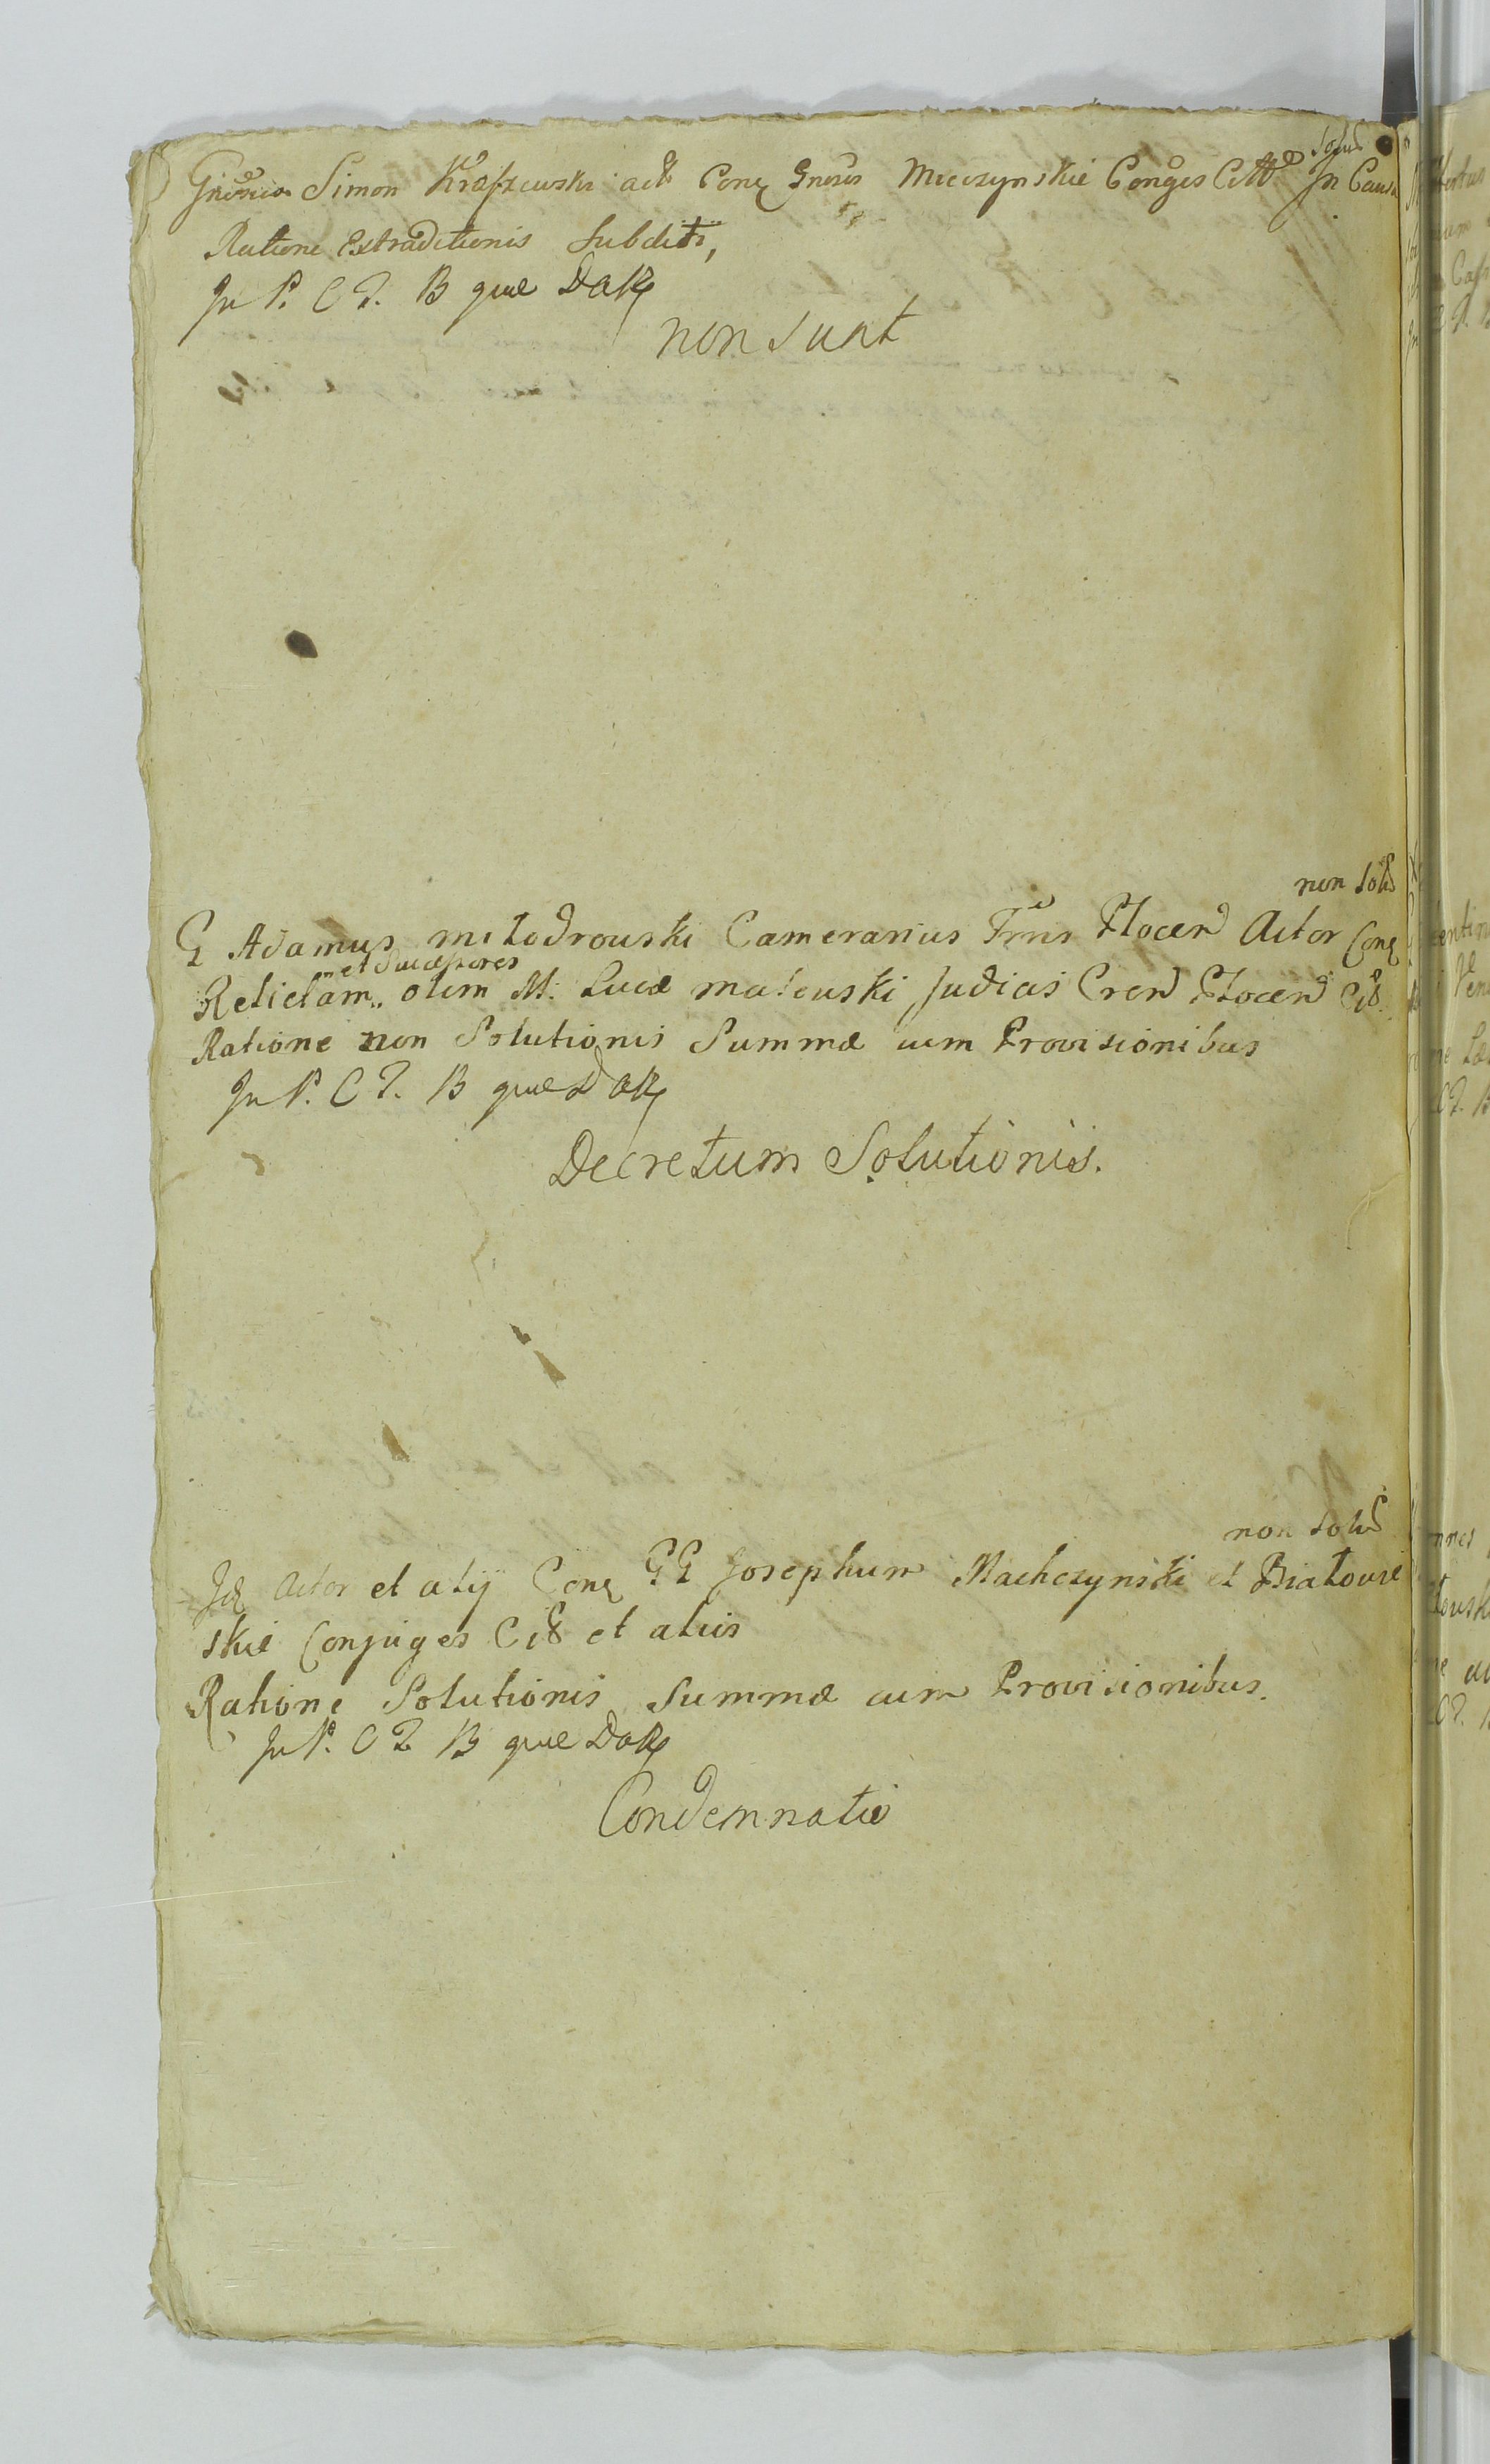 solus
Gnrosus Simon Kraszewski act Conq Gnosos Mieczynskie Conges Citt In Causa
Ratione Extraditionis Subditi,
In P. C T. B que Dak
non sunt
non solus
G Adamus Młodrowski Camerarius Trrns Płocen Actor Conq
et Successores
Relictam olim M. Lucæ małowski Judicis Cren Płocen Cit
Ratione non Solutionis Summæ cum Provisionibus
In P. C T. B que Dak
Decretum Solutionis.
non solus
Id Actor et alij Conq GG Josephum Machczynski et Białowie
skie Conjuges Cit et aliis
Ratione Solutionis Summæ cum Provisionibus.
In P. C T. B que Dak
Condemnatio